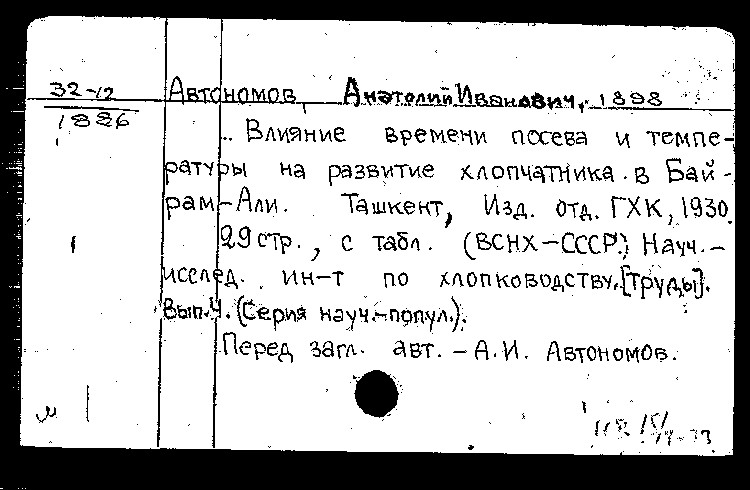 32-12
1886
Автономов, Анатолий Иванович, 1898
.. Влияние времени посева и темпе-
ратуры на развитие хлопчатника в Бай-
рам-Али. Ташкент, Изд. отд. ГХК, 1930.
29 стр., с табл. (ВСНХ-СССР.) Науч.-
исслед. ин-т по хлопководству. [Труды].
Вып. 4. (Серия науч.-попул.).
Перед загл. авт. - А.И. Автономов.